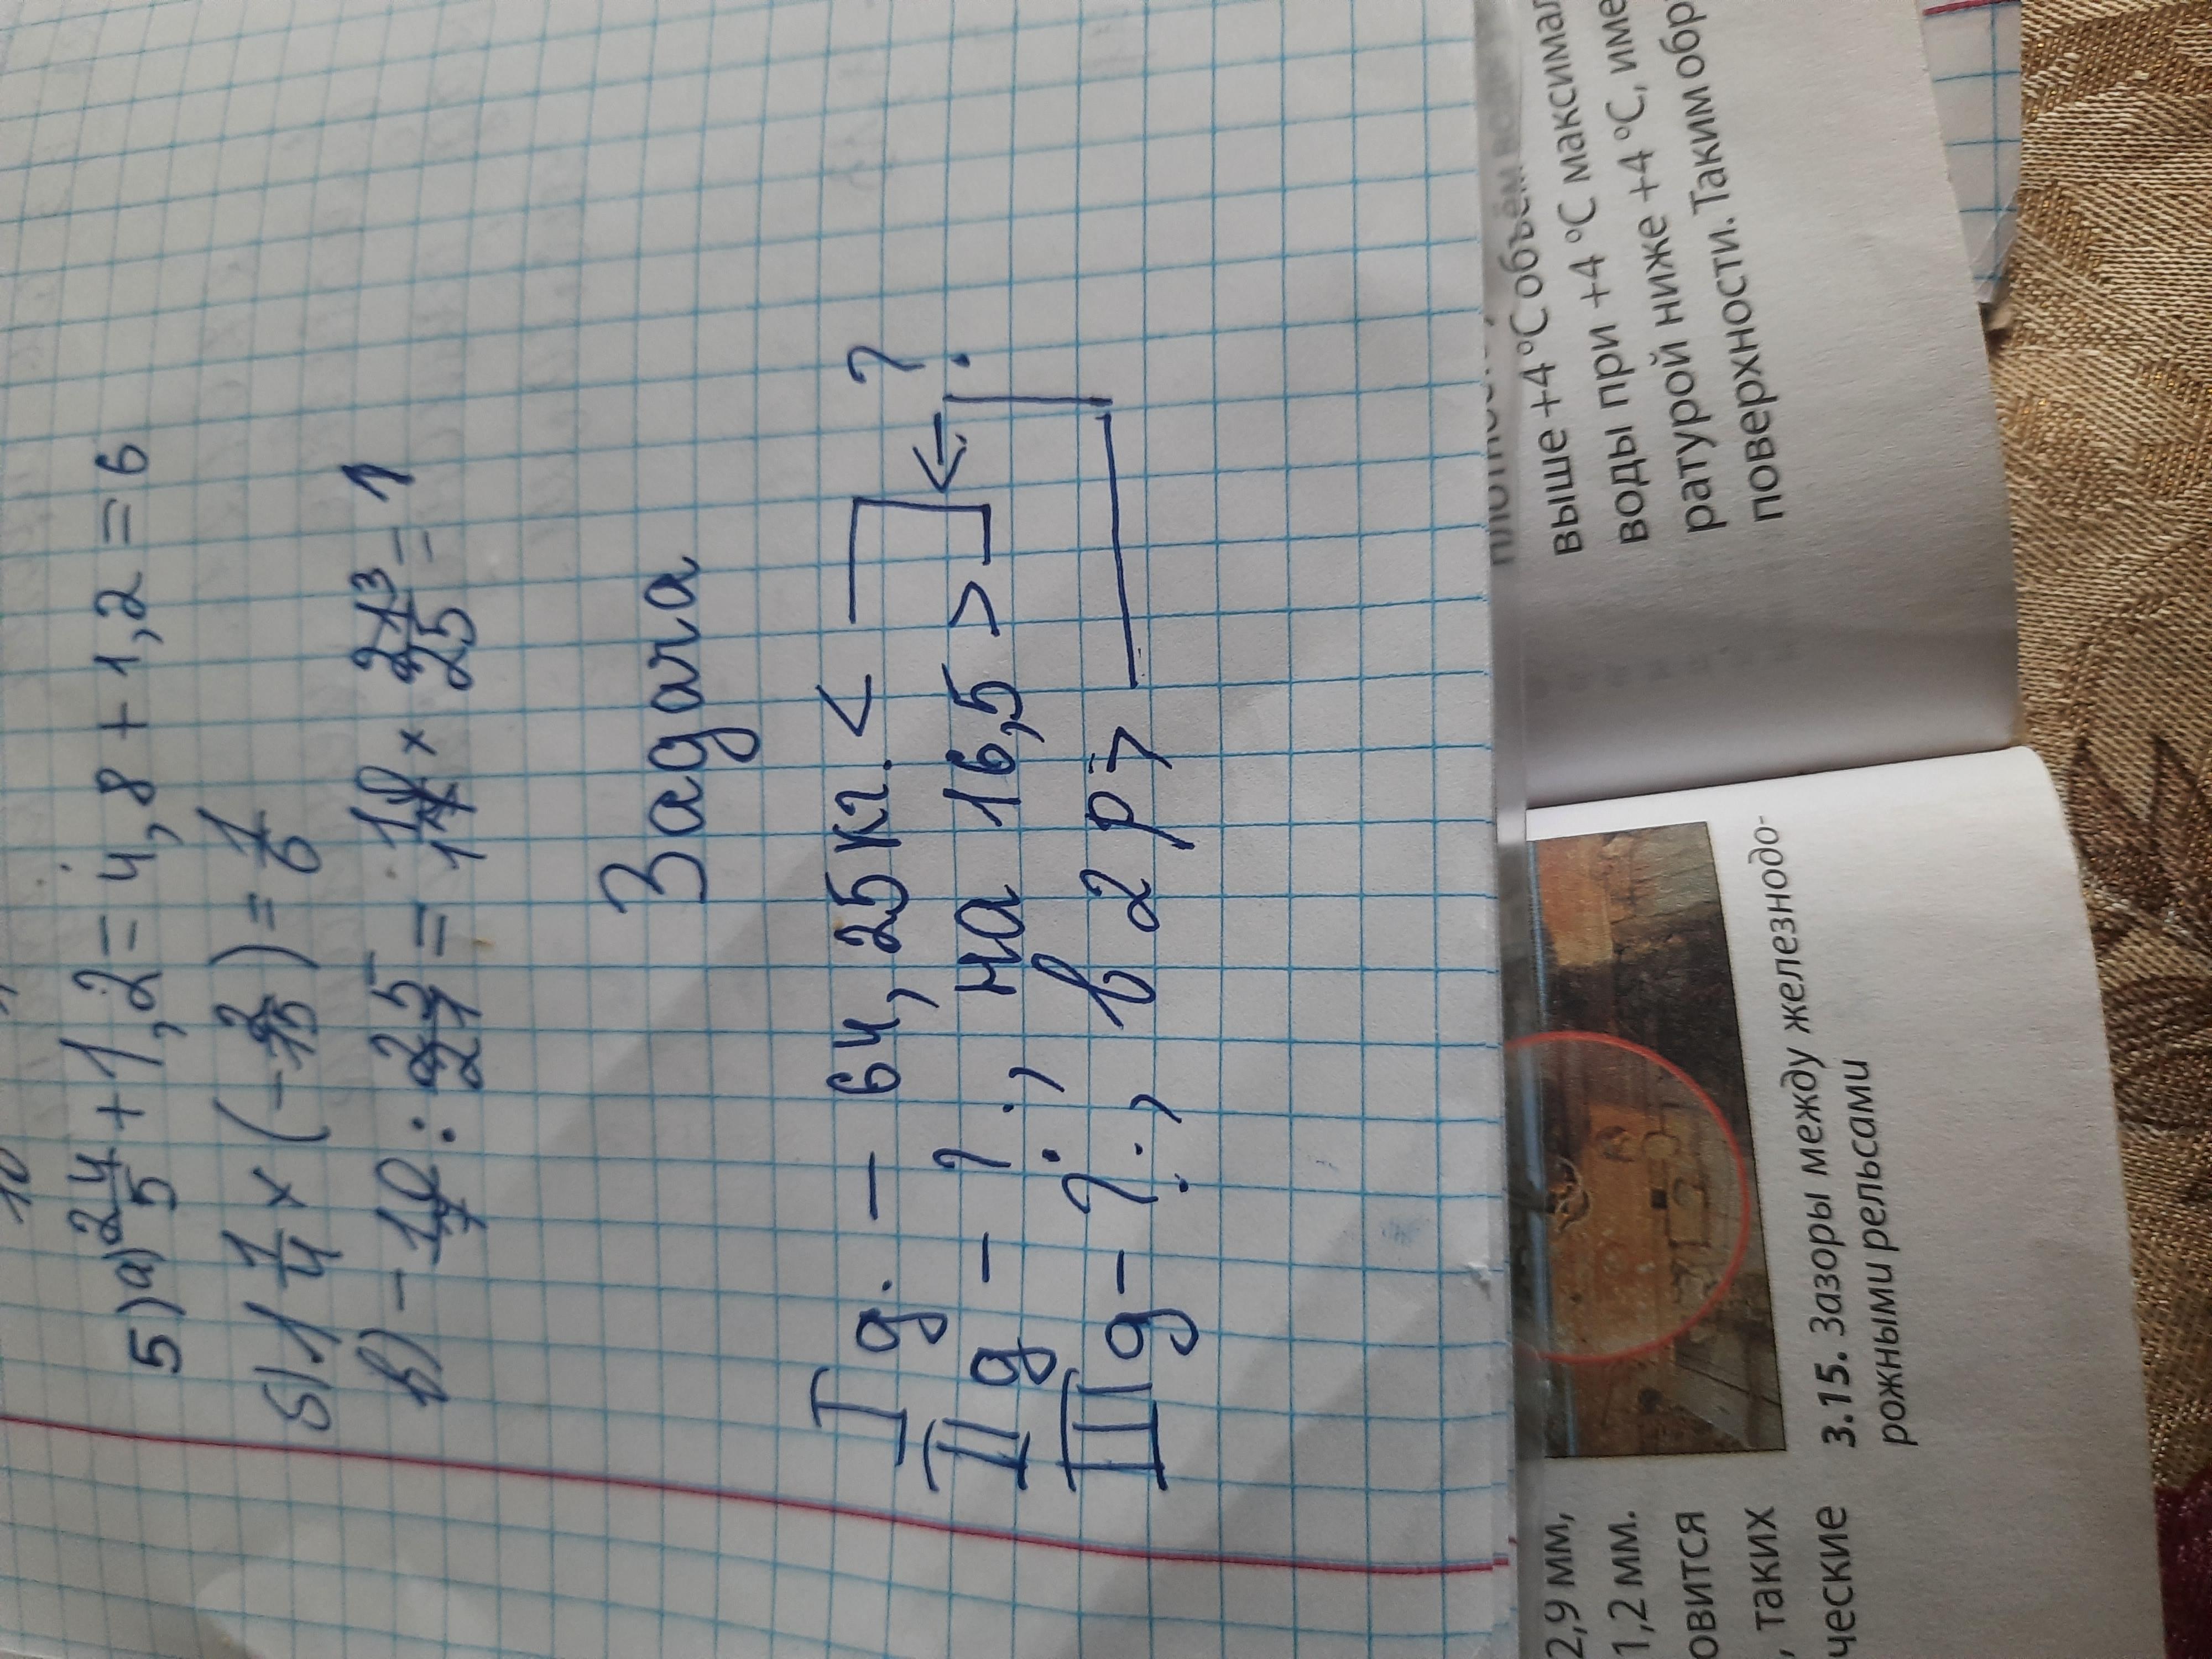 5) а) 2 4/5 + 1,2 = 4,8 + 1,2 = 6
б) 1 1/4 × (- 2/15) = 1/6
в) - 10/7 : 25/21 = 10/17 × 21³/25 = 1
Задача
I д. - 64,25кг. <
II д - ?., на 16,5 >
III д - ?., в 2 р >
?
2,9 мм,
1,2 мм.
овится
, таких
ческие
3.15. Зазоры между железнодо-
рожными рельсами
выше +4 °С объём
воды при +4 °С максимал
ратурой ниже +4 °С, име
поверхности. Таким обр